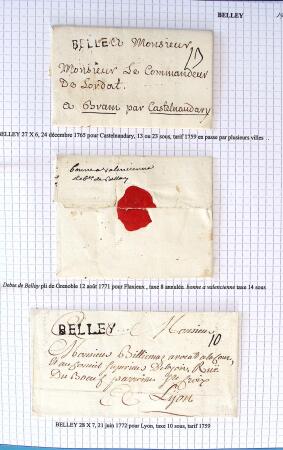 BELLEY
BELLEY
A Monsieur
Monsieur Le Commandeur
De Lordat.
a Bram par Castelnaudary
BELLEY 27 X 6, 24 décembre 1765 pour Castelnaudary, 13 ou 23 sous, tarif 1759 en passe par plusieurs villes
bonne a valencienne
Deb. de Belley
Debus de Belley pli de Grenoble 12 août 1771 pour Flaxieux, taxe 8 annulée, bonne a valencienne taxe 14 sous
BELLEY
Monsieur
10
Monsieur Billiemaz avocat a la Cour,
Rue
Du Boeuf
Lyon
BELLEY 28 X 7, 21 juin 1772 pour Lyon, taxe 10 sous, tarif 1759